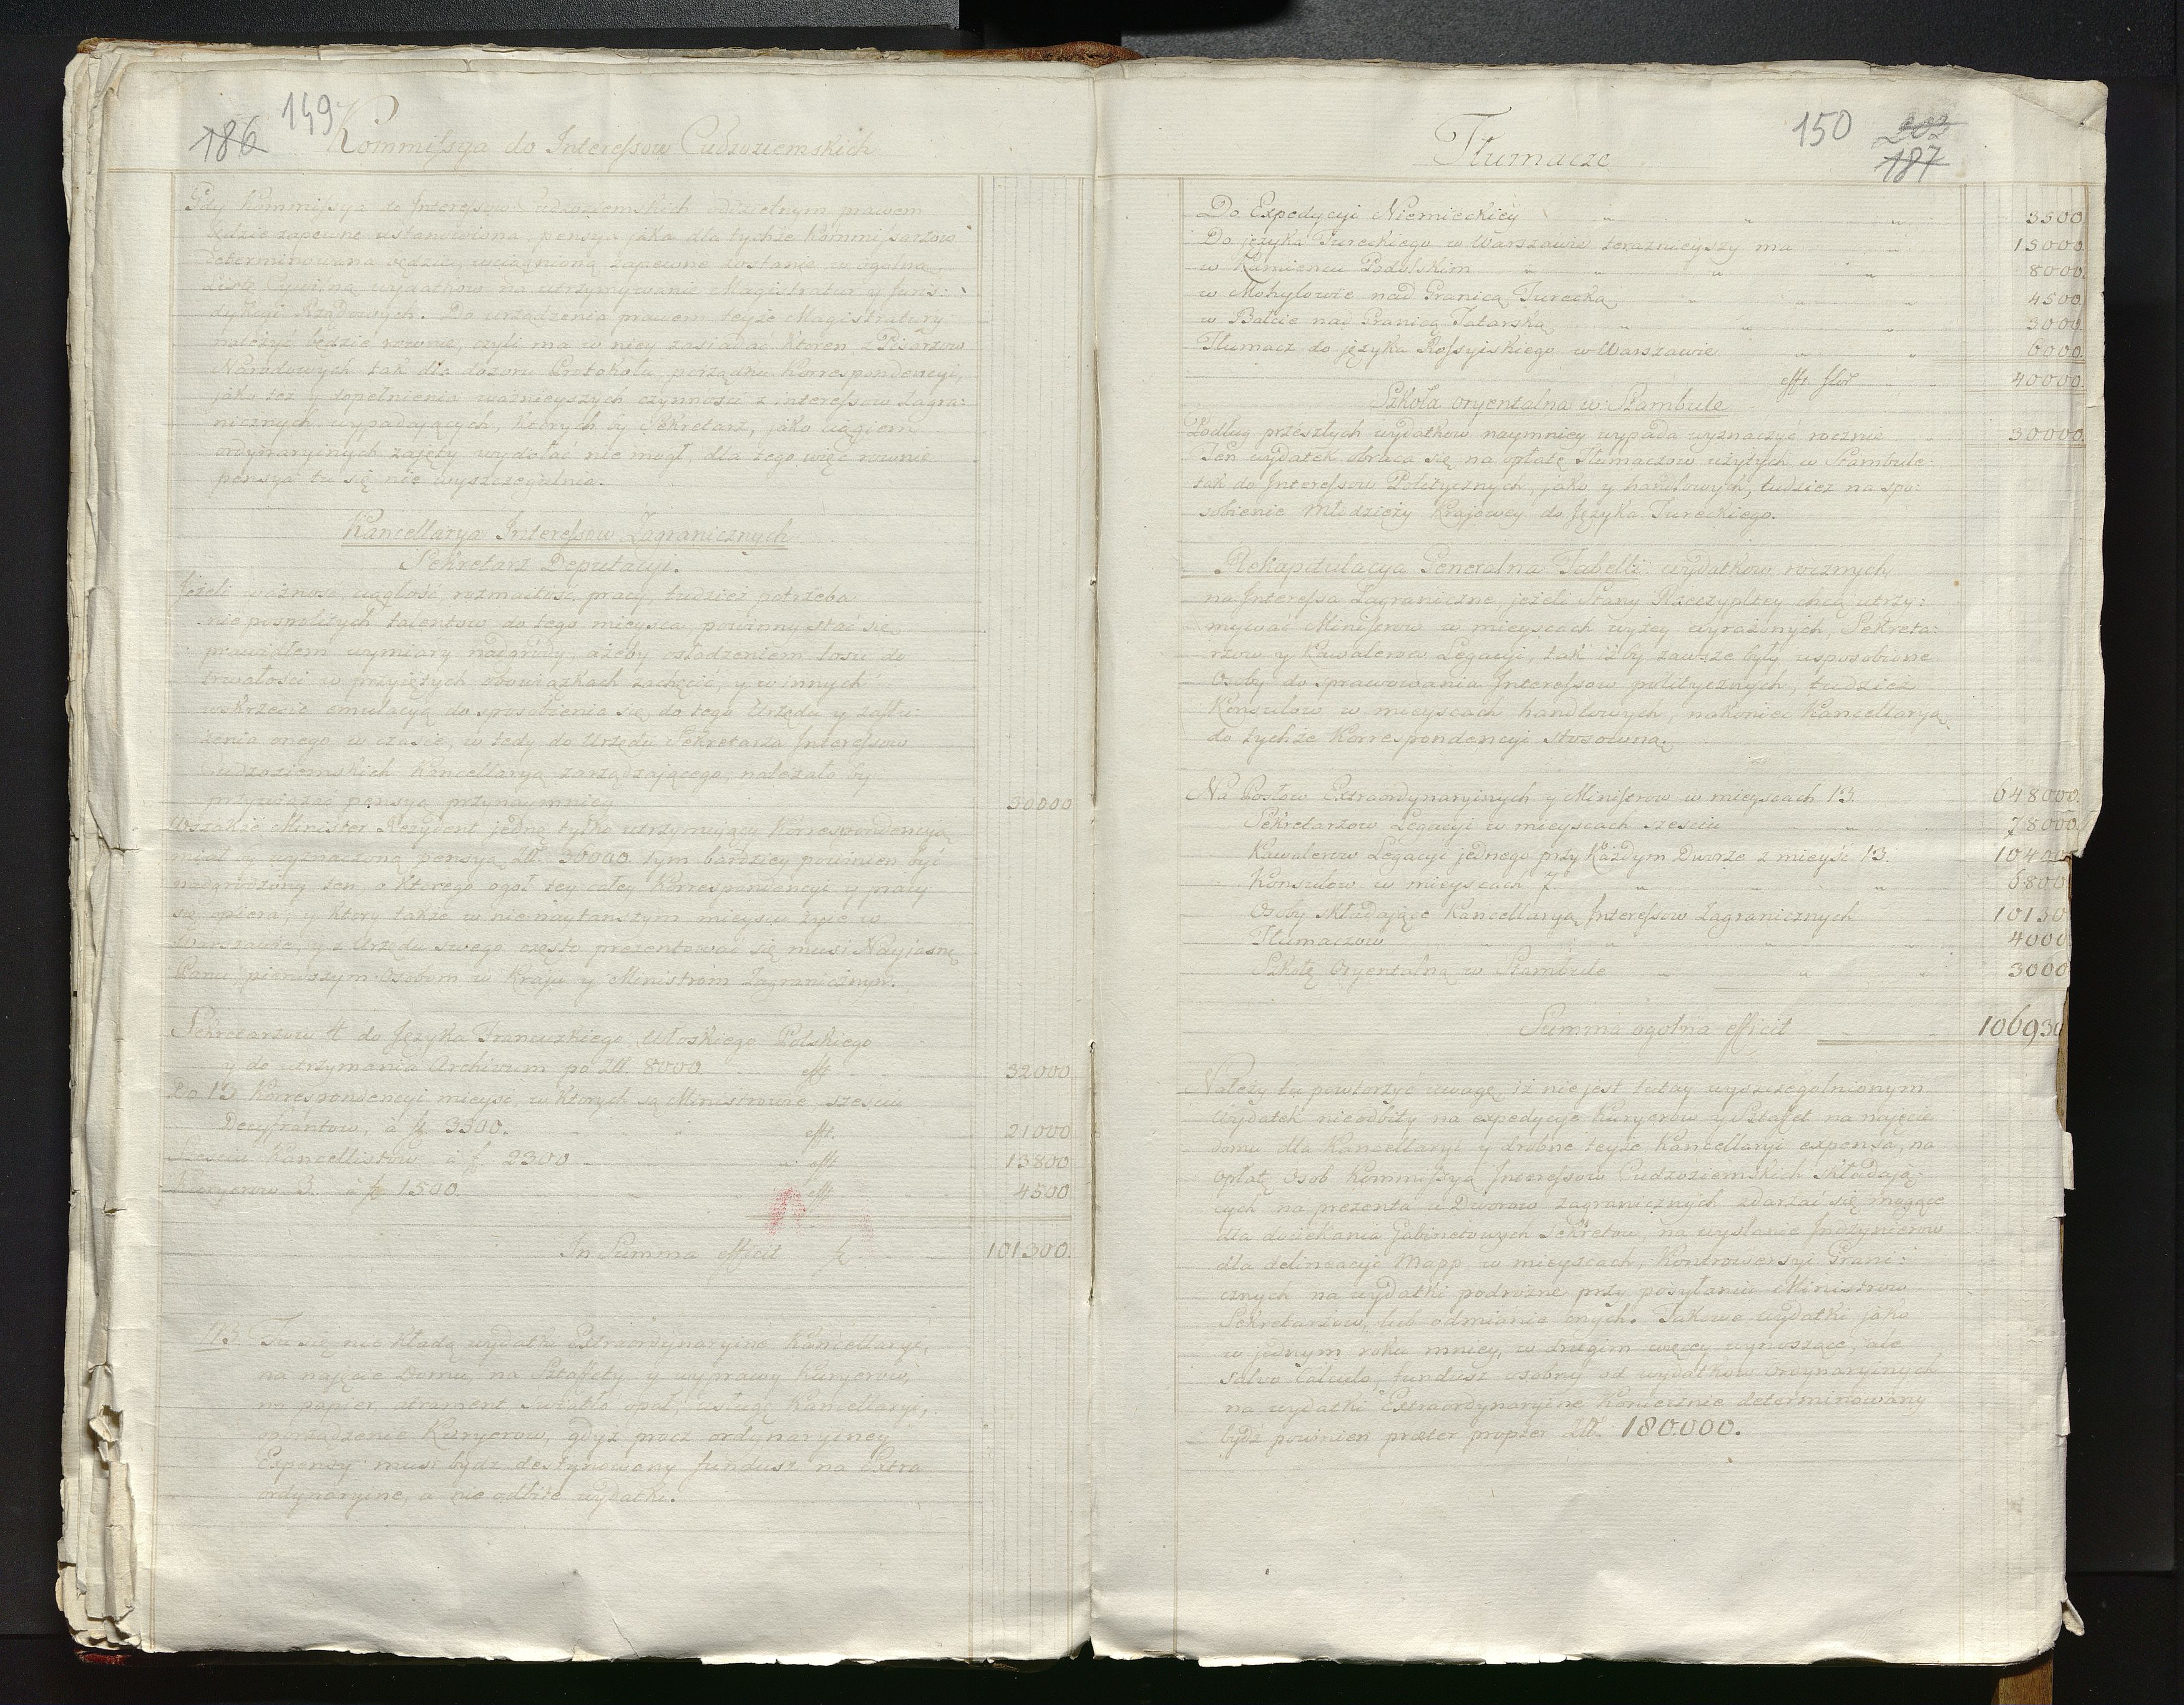 186 149
Kommissya do Interessow Cudzoziemskich
Gdy Kommissya do Interessow Cudzoziemskich oddzielnym prawem
będzie zapewne ustanowiona, pensya jaka dla tychże Kommissarzow
determinowana będzie, wciągnioną zapewne zostanie w ogolną
Listę Cywilną wydatkow na utrzymywanie Magistratur y Juris:
dykcyi Rządowych. Do urządzenia prawem teyże Magistratury
należyć będzie rownie, czyli ma w niey zasiadać ktoren z Pisarzow
Narodowych tak dla dozoru Protokołu, porządku Korrespondencyi,
jako też y dopełnienia ważnieyszych czynności z interessow Zagra:
nicznych wypadających, ktorych by Sekretarz, jako ciągiem
ordynaryinych zajęty wydołać nie mogł, dla tego więc rownie
pensya tu się nie wyszczegulnia.
Kancellarya Interessow Zagranicznych
Sekretarz Deputacyi.
Jeżeli ważność, ciągłość, rozmaitość pracy, tudzież potrzeba
nie pospolitych talentow do tego mieysca, powinny stać się
prawidłem wymiary nadgrody, ażeby osłodzeniem losu do
trwałości w przyiętych obowiązkach zachęcić, y w innych
wskrzesić emulacyą do sposobienia się do tego Urzędu y zasłu:
żenia onego w czasie, w tedy do Urzędu Sekretarza Interessow
Cudzoziemskich Kancellaryą zarządzającego, należało by
przywiązać pensyą przynaymniey 30000
Wszakże Minister Rezydent jedną tylko utrzymujący Korrespondencyą
miał y wyznaczoną pensyą Zł. 30000. tym bardziey powinien być
nadgrodzony ten, o ktorego ogoł tey całey Korrespondencyi y pracy
się opiera, y ktory także w nie naytańszym mieyscu żyie w
Warszawie, y z Urzędu swego często prezentować się musi Nayjaśn.
Panu pierwszym Osobom w Kraju y Ministrom Zagranicznym.
Sekretarzow 4 do Języka Francuzkiego Włoskiego Polskiego
y do utrzymania Archivum po Zł. 8000. efft 32000
Do 13 Korrespondencyi mieysc, w ktorych są Ministrowie, sześciu
Decyfrantow, à f. 3500. efft. 21000
Sześciu Kancellistow à f. 2300 efft 13800
Kuryerow 3. à f. 1500. efft 4500
In Summa efficit f. 101300.
NB. Tu się nie kładą wydatki Extraordynaryine Kancellaryi,
na najęcie Domu, na Sztaffety y wyprawy Kuryerow,
na papier, atrament światło opał, usługę Kancellaryi,
oporządzenie Kuryerow, gdyż procz ordynaryiney
Expensy musi bydz destynowany fundusz na Extra
ordynaryine, a nie odbite wydatki.
150 202
187
Tłumacze
Do Expedycyi Niemieckiey 3500
Do języka Tureckiego w Warszawie teraznieyszy ma 15000.
w Kamiencu Podolskim 8000.
w Mohylowie nad Granicą Turecką 4500.
w Bałcie nad Granicą Tatarską 3000.
Tłumacz do języka Rossyiskiego w Warszawie 6000.
efft flor 40000.
Szkoła oryentalna w Stambule
Podług przeszłych wydatkow naymniey wypada wyznaczyć rocznie 30000.
Ten wydatek obraca się na opłatę Tłumaczow użytych w Stambule
tak do Interessow Politycznych, jako y handlowych, tudziez na spo:
sobienie Młodzieży Krajowey do Języka Tureckiego.
Rekapitulacya Generalna Tabelli wydatkow rocznych
na Interessa Zagraniczne, jeżeli Stany Rzeczypltey chcą utrzy:
mywać Ministrow w mieyscach wyżey wyrażonych, Sekreta:
rzow y Kawalerow Legacyi, tak iżby zawsze były usposobione
Osoby do sprawowania Interessow politycznych, tudzież
Konsulow w mieyscach handlowych, nakoniec Kancellaryą
do tychże Korrespondencyi stosowną.
Na Posłow Extraordynaryinych y Ministrow w mieyscach 13. 648000.
Sekretarzow Legacyi w mieyscach sześciu 78000.
Kawalerow Legacyi jednego przy każdym Dworze z mieysc 13. 10400
Konsulow w mieyscach 7. 6800
Osoby składające Kancellaryą Interessow Zagranicznych 10130
Tłumaczow 4000
Szkołę Oryentalną w Stambule 3000
Summa ogolna efficit 106930
Należy tu powtorzyć uwagę, iż nie jest tutay wyszczegolnionym
wydatek nieodbity na expedycye Kuryerow y Sztaffet na najęcie
domu dla Kancellaryi y drobne teyże Kancellaryi expensa, na
opłatę Osob Kommissyą Interessow Cudzoziemskich składają:
cych na prezenta u Dworow zagranicznych zdarzać się mogące
dla dociekania Gabinetowych Sekretow, na wysłanie Indzynierow
dla delineacyi Mapp w mieyscach, Kontrowersyi Grani:
cznych na wydatki podrożne przy posyłaniu Ministrow
Sekretarzow, lub odmianie onych. Takowe wydatki jako
w jednym roku mniey, w drugim więcey wynoszące, ale
salvo Calculo, fundusz osobny od wydatkow ordynaryinych
na wydatki Extraordynaryine Koniecznie determinowany
bydź powinien præter propter Zł. 180000.